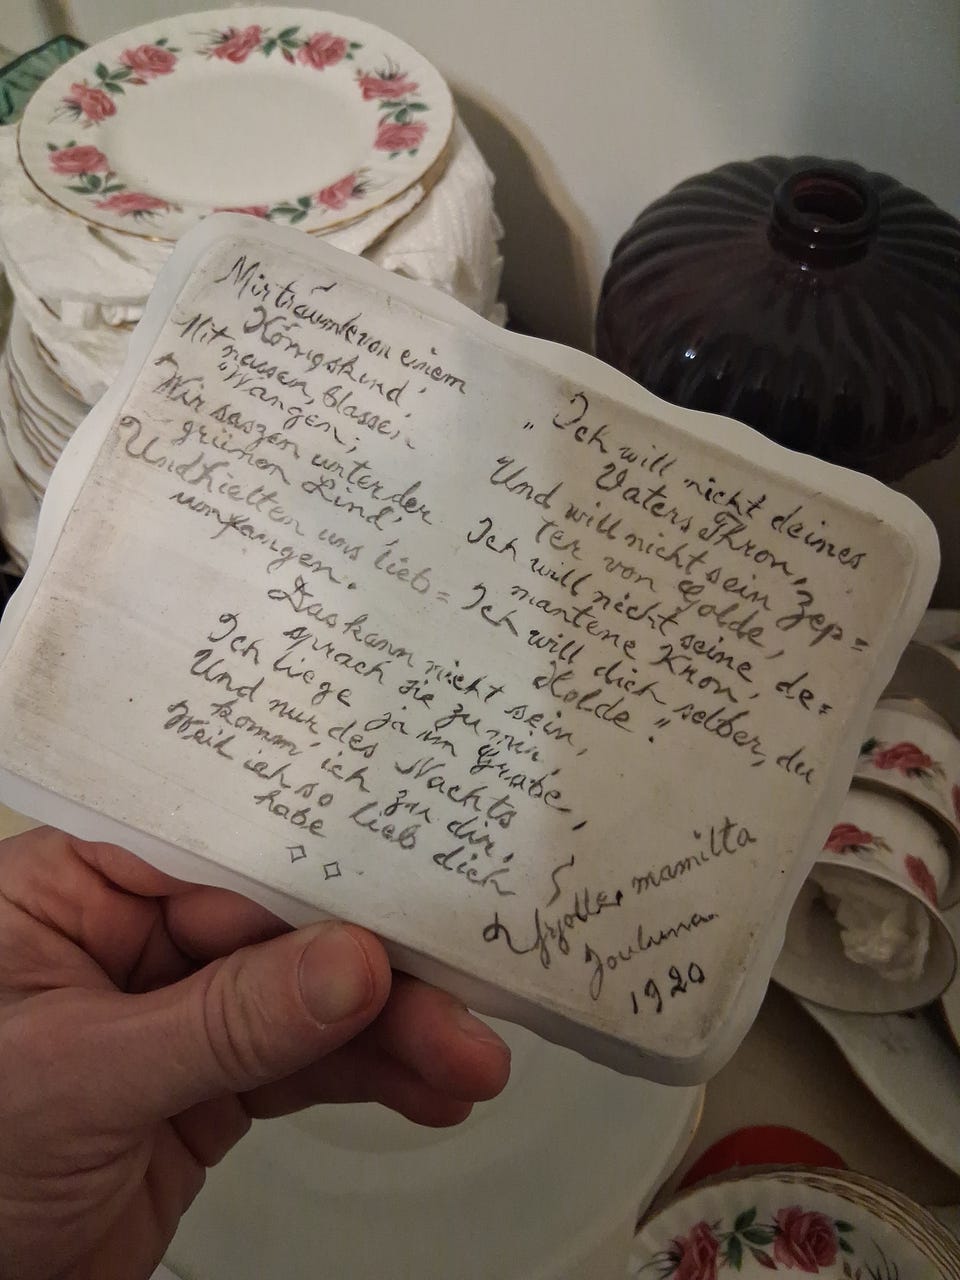 Mir träumte von einem
Königskind,
Mit nassen, blassen
Wangen;
Wir saszen unter der
grünen Lind,
Und hielten uns lieb=
umfangen.
„Ich will nicht deines
Vaters Thron,
Und will nicht sein Zep=
ter von Golde,
Ich will nicht seine, de=
mantene Kron,
Ich will dich selber, du
Holde."
Das kann nicht sein,
sprach sie zu mir,
Ich liege ja im Grabe,
Und nur des Nachts
komm' ich zu dir,
Weil ich so lieb dich
habe
mamilta
Jouluna.
1920